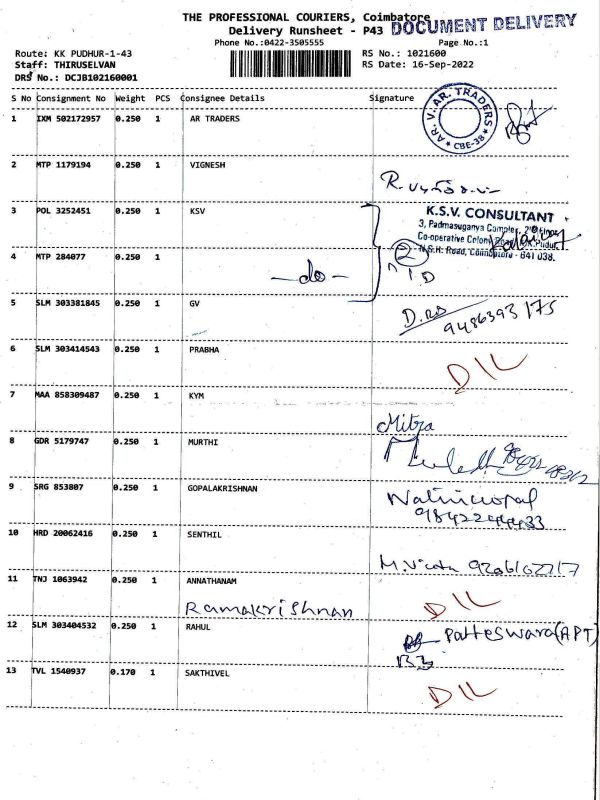 THE PROFESSIONAL COURIERS, Coimbatore
DOCUMENT DELIVERY
Delivery Runsheet - P43
Phone No.:0422-3505555
Page No.:1
Route: KK PUDHUR-1-43
RS No.: 1021600
Staff: THIRUSELVAN
RS Date: 16-Sep-2022
DRS No.: DCJB102160001
S No Consignment No Weight PCS Consignee Details Signature
1 IXM 502172957 0.250 1 AR TRADERS
AR. V. AR. TRADERS
* CBE-38 *
2 MTP 1179194 0.250 1 VIGNESH
R.
3 POL 3252451 0.250 1 KSV
K.S.V. CONSULTANT
3, Padmasuganya Complex, 2nd Floor,
Co-operative Colony Road, K.K.Pudur,
N.S.R. Road, Coimbatore - 641 038.
4 MTP 284077 0.250 1
2
-do-
5 SLM 303381845 0.250 1 GV
9486393175
6 SLM 303414543 0.250 1 PRABHA
D/L
7 MAA 858309487 0.250 1 KYM
Mitra
8 GDR 5179747 0.250 1 MURTHI
9 SRG 853807 0.250 1 GOPALAKRISHNAN
10 HRD 20062416 0.250 1 SENTHIL
11 TNJ 1063942 0.250 1 ANNATHANAM
D/L
Ramakrishnan
12 SLM 303404532 0.250 1 RAHUL
Patteswara(APT)
B3
13 TVL 1540937 0.170 1 SAKTHIVEL
D/L